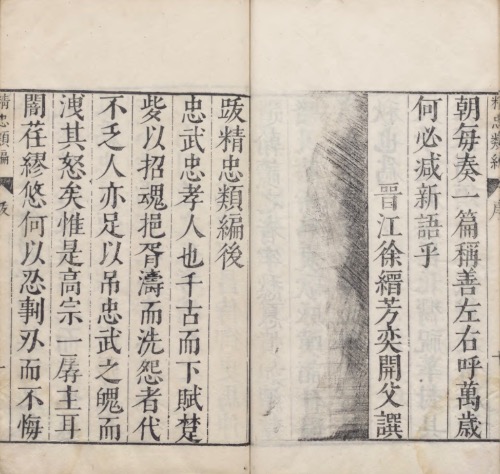 朝每奏一篇稱善左右呼萬歲
何必减新語乎
晋江徐縉芳奕開父譔
跋精忠類編後
忠武忠孝人也千古而下賦楚
些以招魂挹胥濤而洗怨者代
不乏人亦足以吊忠武之魄而
洩其怒矣惟是高宗一孱主耳
闇荏繆悠何以忍剚刃而不悔
精忠類編
跋